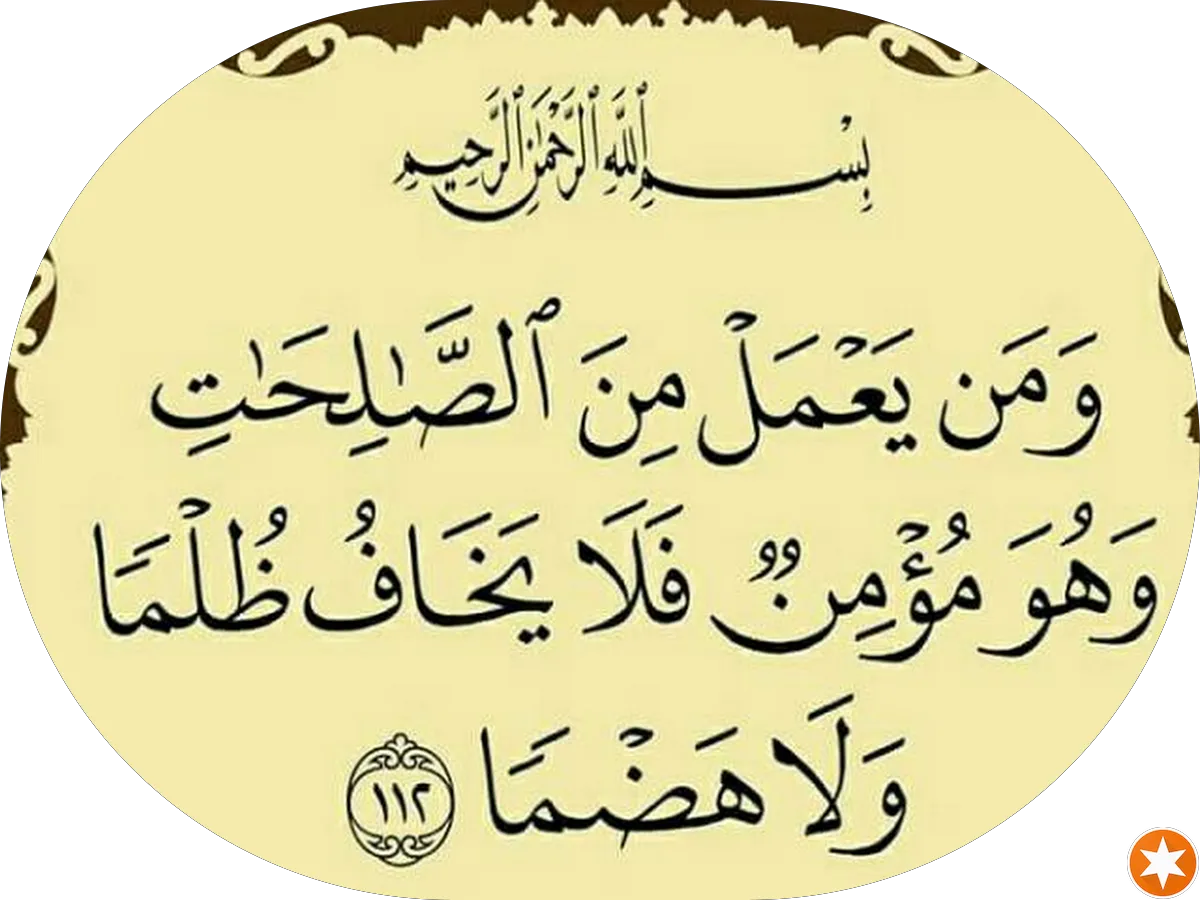 بِسْمِ ٱللَّهِ ٱلرَّحْمَٰنِ ٱلرَّحِيمِ
وَمَن يَعْمَلْ مِنَ ٱلصَّٰلِحَٰتِ
وَهُوَ مُؤْمِنٌ فَلَا يَخَافُ ظُلْمًا
وَلَا هَضْمًا ١١٢